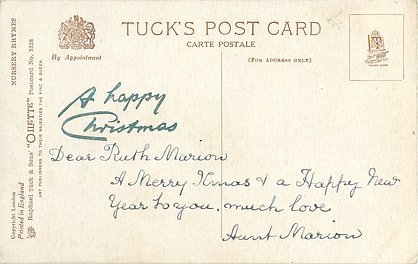 TUCK'S POST CARD
CARTE POSTALE
By Appointment
(FOR ADDRESS ONLY)
TRADE MARK
NURSERY RHYMES
Raphael Tuck & Sons' "OILETTE" Postcard No. 3328
ART PUBLISHERS TO THEIR MAJESTIES THE KING & QUEEN.
Copyright London
Printed in England
A happy
Christmas
Dear Ruth Marion
A Merry Xmas & a Happy New
Year to you, much love
Aunt Marion